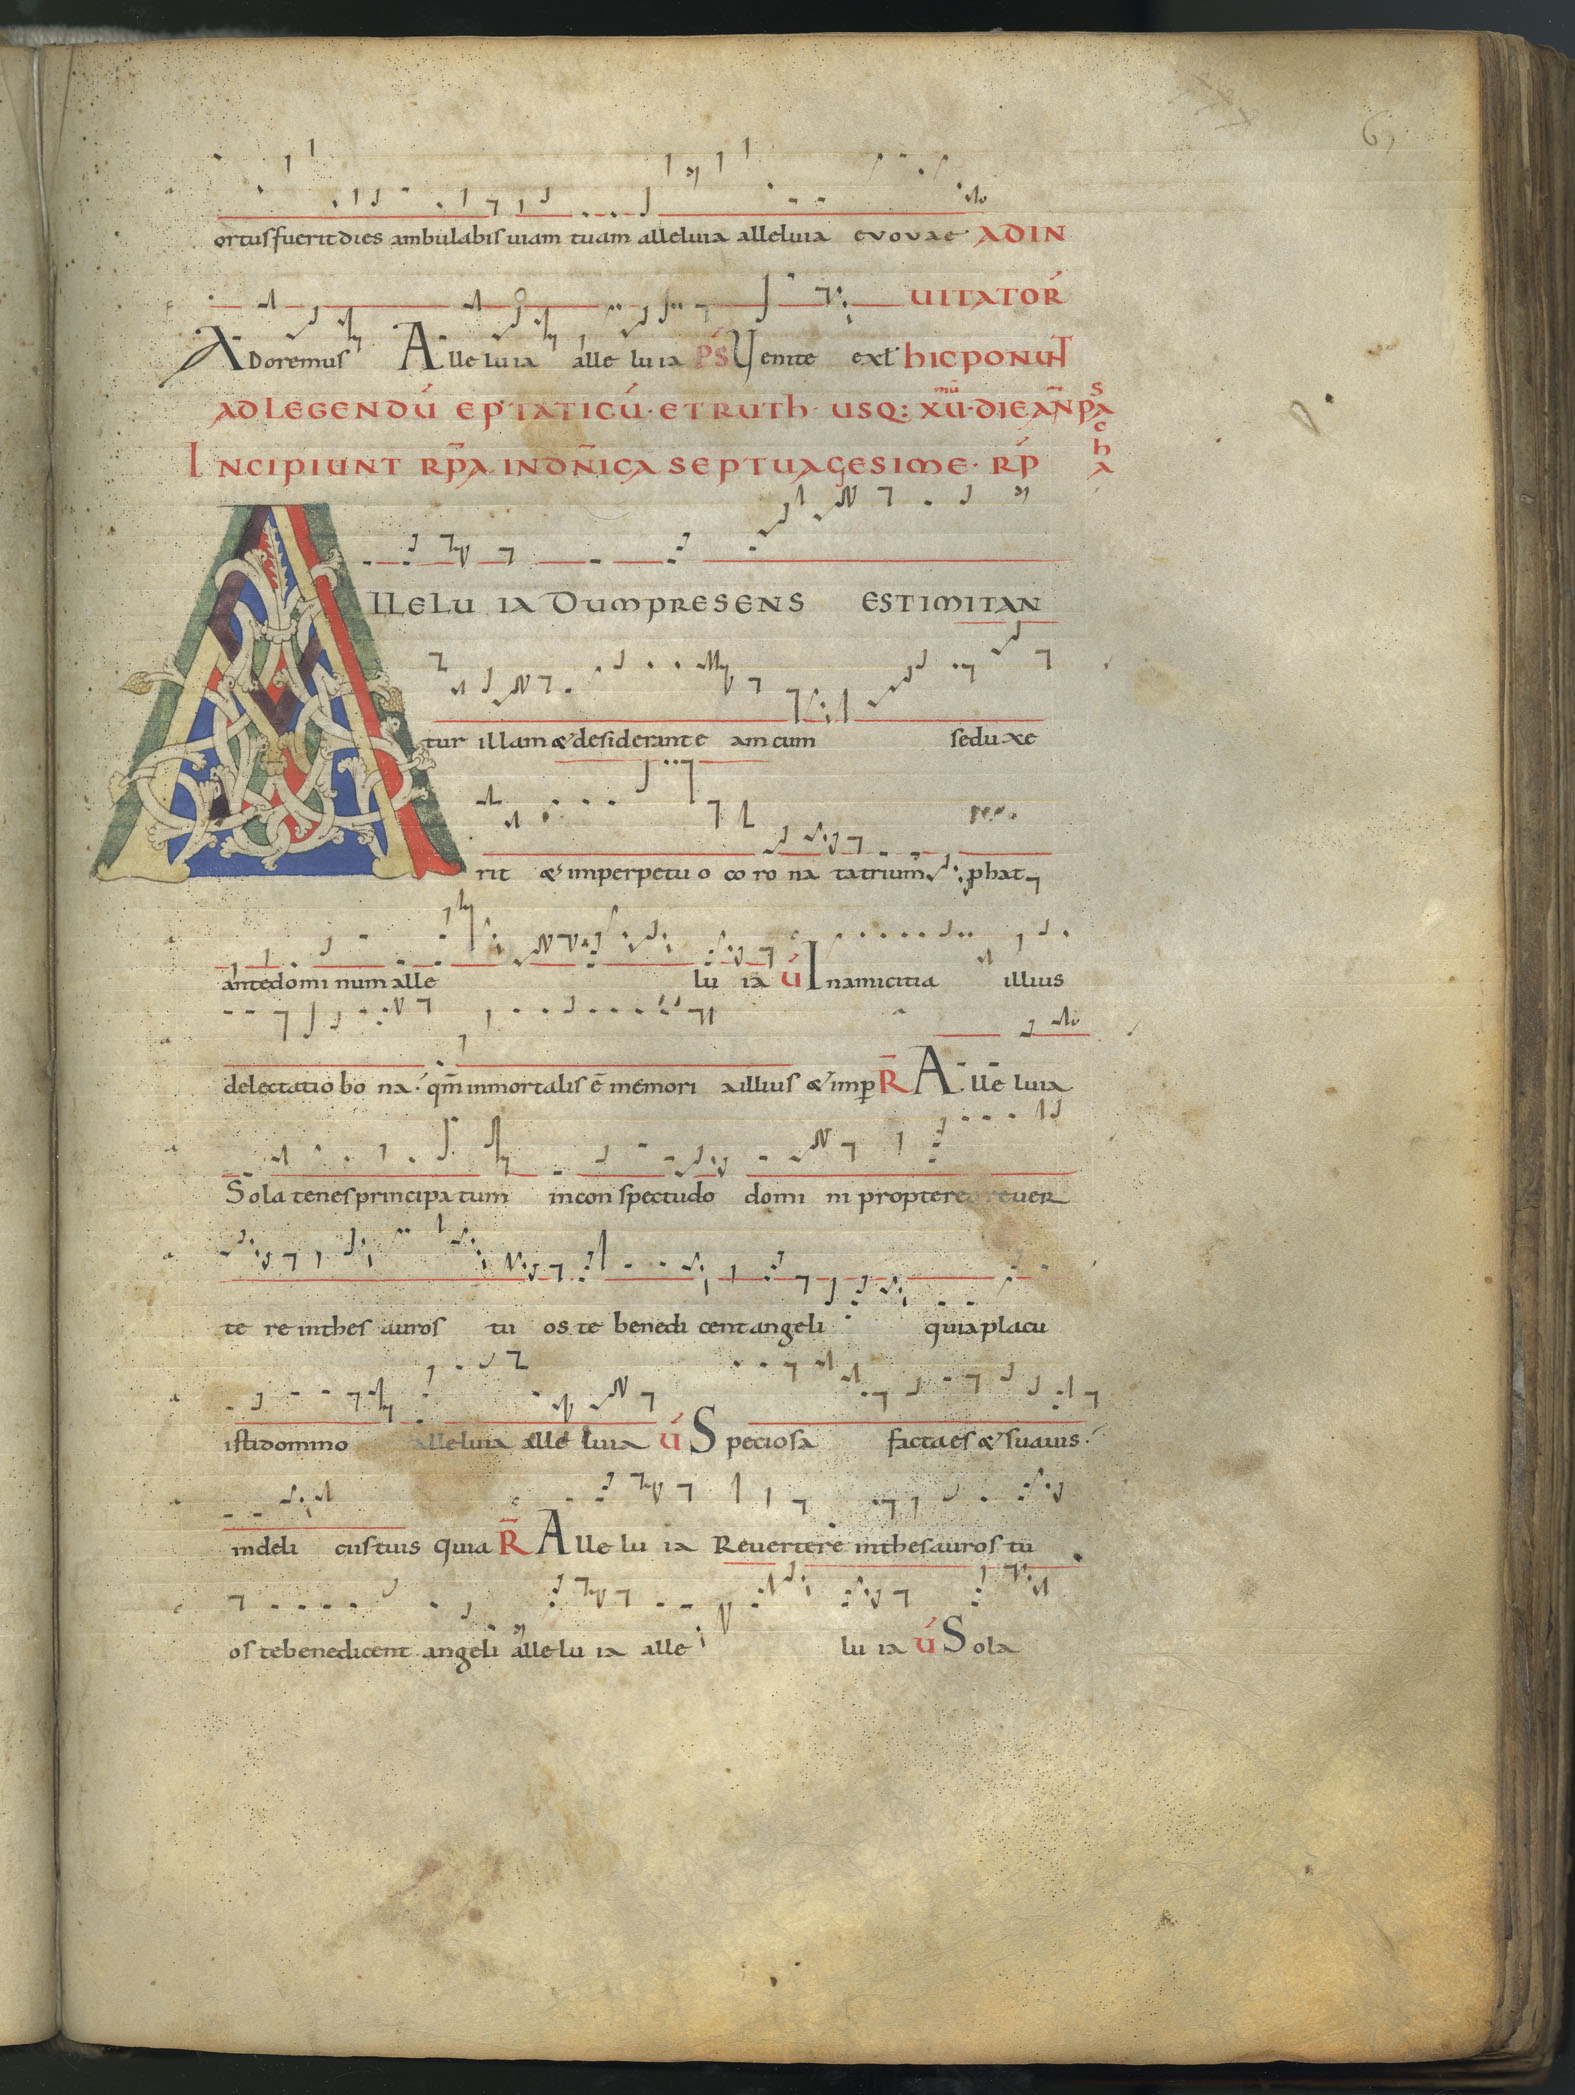 67
ortus fuerit dies ambulabis uiam tuam alleluia alleluia evovae AD IN
UITATOR
Adoremus Alle luia alle luia PS Uenite exl HIC PONUNT
AD LEGENDU EPTATICU · ET RUTH · USQ: XU · DIE AN PASCHA
INCIPIUNT RPA IN DNICA SEPTUAGESIME · RP
ALLELU IA DUM PRESENS EST IMITAN
tur illam & desiderant e am cum se duxe
rit & imperpetu o co ro na ta trium phat
ante domi num alle lu ia U In amicitia illius
delectatio bo na · qm inmortalis e memori a illius & imp R Alle luia
Sola tenes principa tum in con spectu do domi ni propterea reuer
te re in thes auros tu os te benedi cent angeli quia placu
isti domino alleluia alle luia U Speciosa facta es & suauis ·
in deli ciis tuis quia R Alle lu ia Reuertere in thesauros tu
os te benedicent angeli alle lu ia alle lu ia U Sola